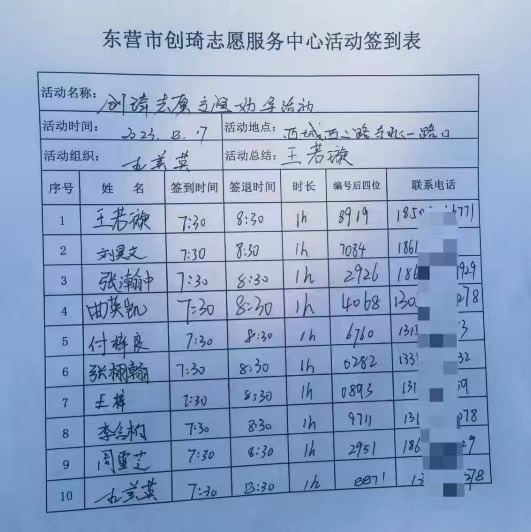 东营市创琦志愿服务中心活动签到表
活动名称: 创琦志愿交通劝导活动
活动时间: 2023.8.17 活动地点: 西城西二路 一路口
活动组织: 美英 活动总结: 王若漩
序号 姓 名 签到时间 签退时间 时长 编号后四位 联系电话
1 王若漩 7:30 8:30 1h 8919 185 6771
2 刘昊文 7:30 8:30 1h 7084 1861
3 张瀚中 7:30 8:30 1h 2926 186 929
4 曲英凯 7:30 8:30 1h 4068 130 278
5 付梓良 7:30 8:30 1h 6760 131 3
6 张栩翰 7:30 8:30 1h 0282 133 32
7 王梓 7:30 8:30 1h 0893 131 9
8 李 7:30 8:30 1h 9711 131 078
9 周雪芝 7:30 8:30 1h 2951 186 29
10 美英 7:30 8:30 1h 8871 13 278